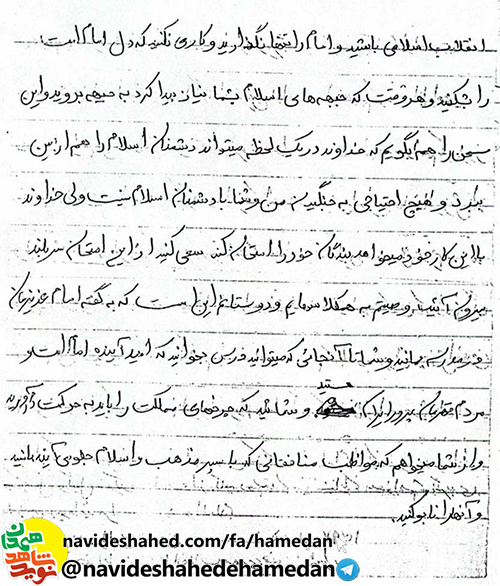 انقلاب اسلامی باشید و امام را تنها نگذارید و کاری نکنید که دل امام امت
را بشکنید و هر وقت که جبهه های اسلام به شما نیاز پیدا کرد به جبهه بروید و این
سخن را هم بگویم که خداوند در یک لحظه میتواند دشمنان اسلام را هم از بین
ببرد و هیچ احتیاجی به جنگیدن من و شما با دشمنان اسلام نیست ولی خداوند
با این کار خود میخواهد بندگان خود را امتحان کند سعی کنید از این امتحان سربلند
بیرون آیید و وصیتم به همکلاسهایم و دوستانم این است که به گفته امام عزیزمان
بمانید و شما تا آنجائی که میتوانید درس بخوانید که امید آینده امام امت و
مردم هستید و شمائید که چرخهای مملکت را باید به حرکت درآورید
و از شما میخواهم که مواظب منافقانی که با سپر مذهب و اسلام جلو می آیند باشید
و آنها را نابود کنید.
navideshahed.com/fa/hamedan
@navideshahedehamedan
نوید شاهد همدان